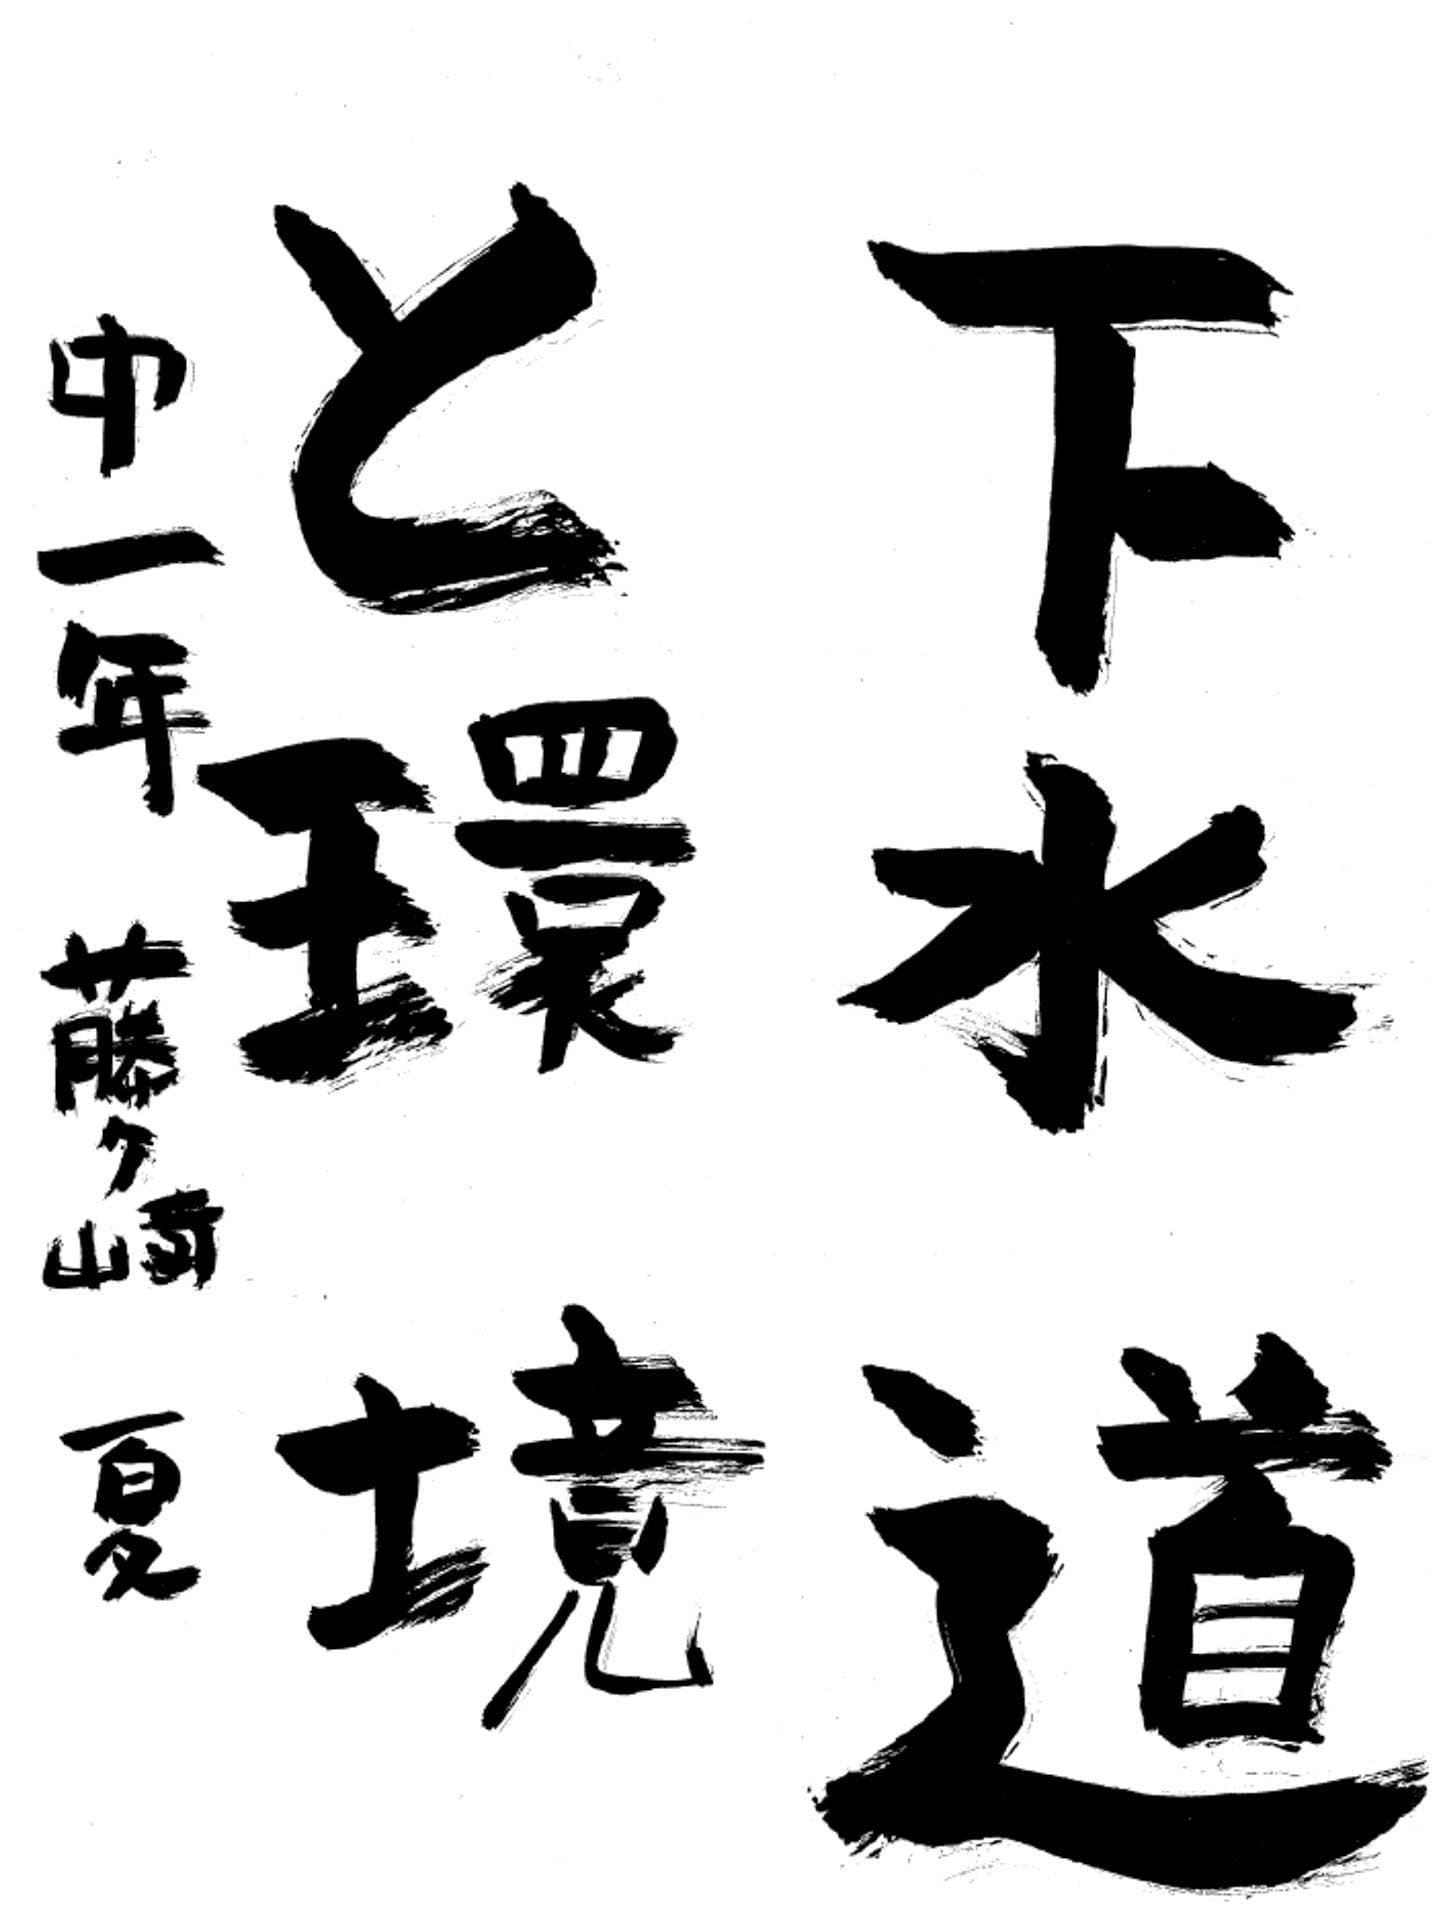 下水道
と環境
中一年 藤ヶ崎 夏